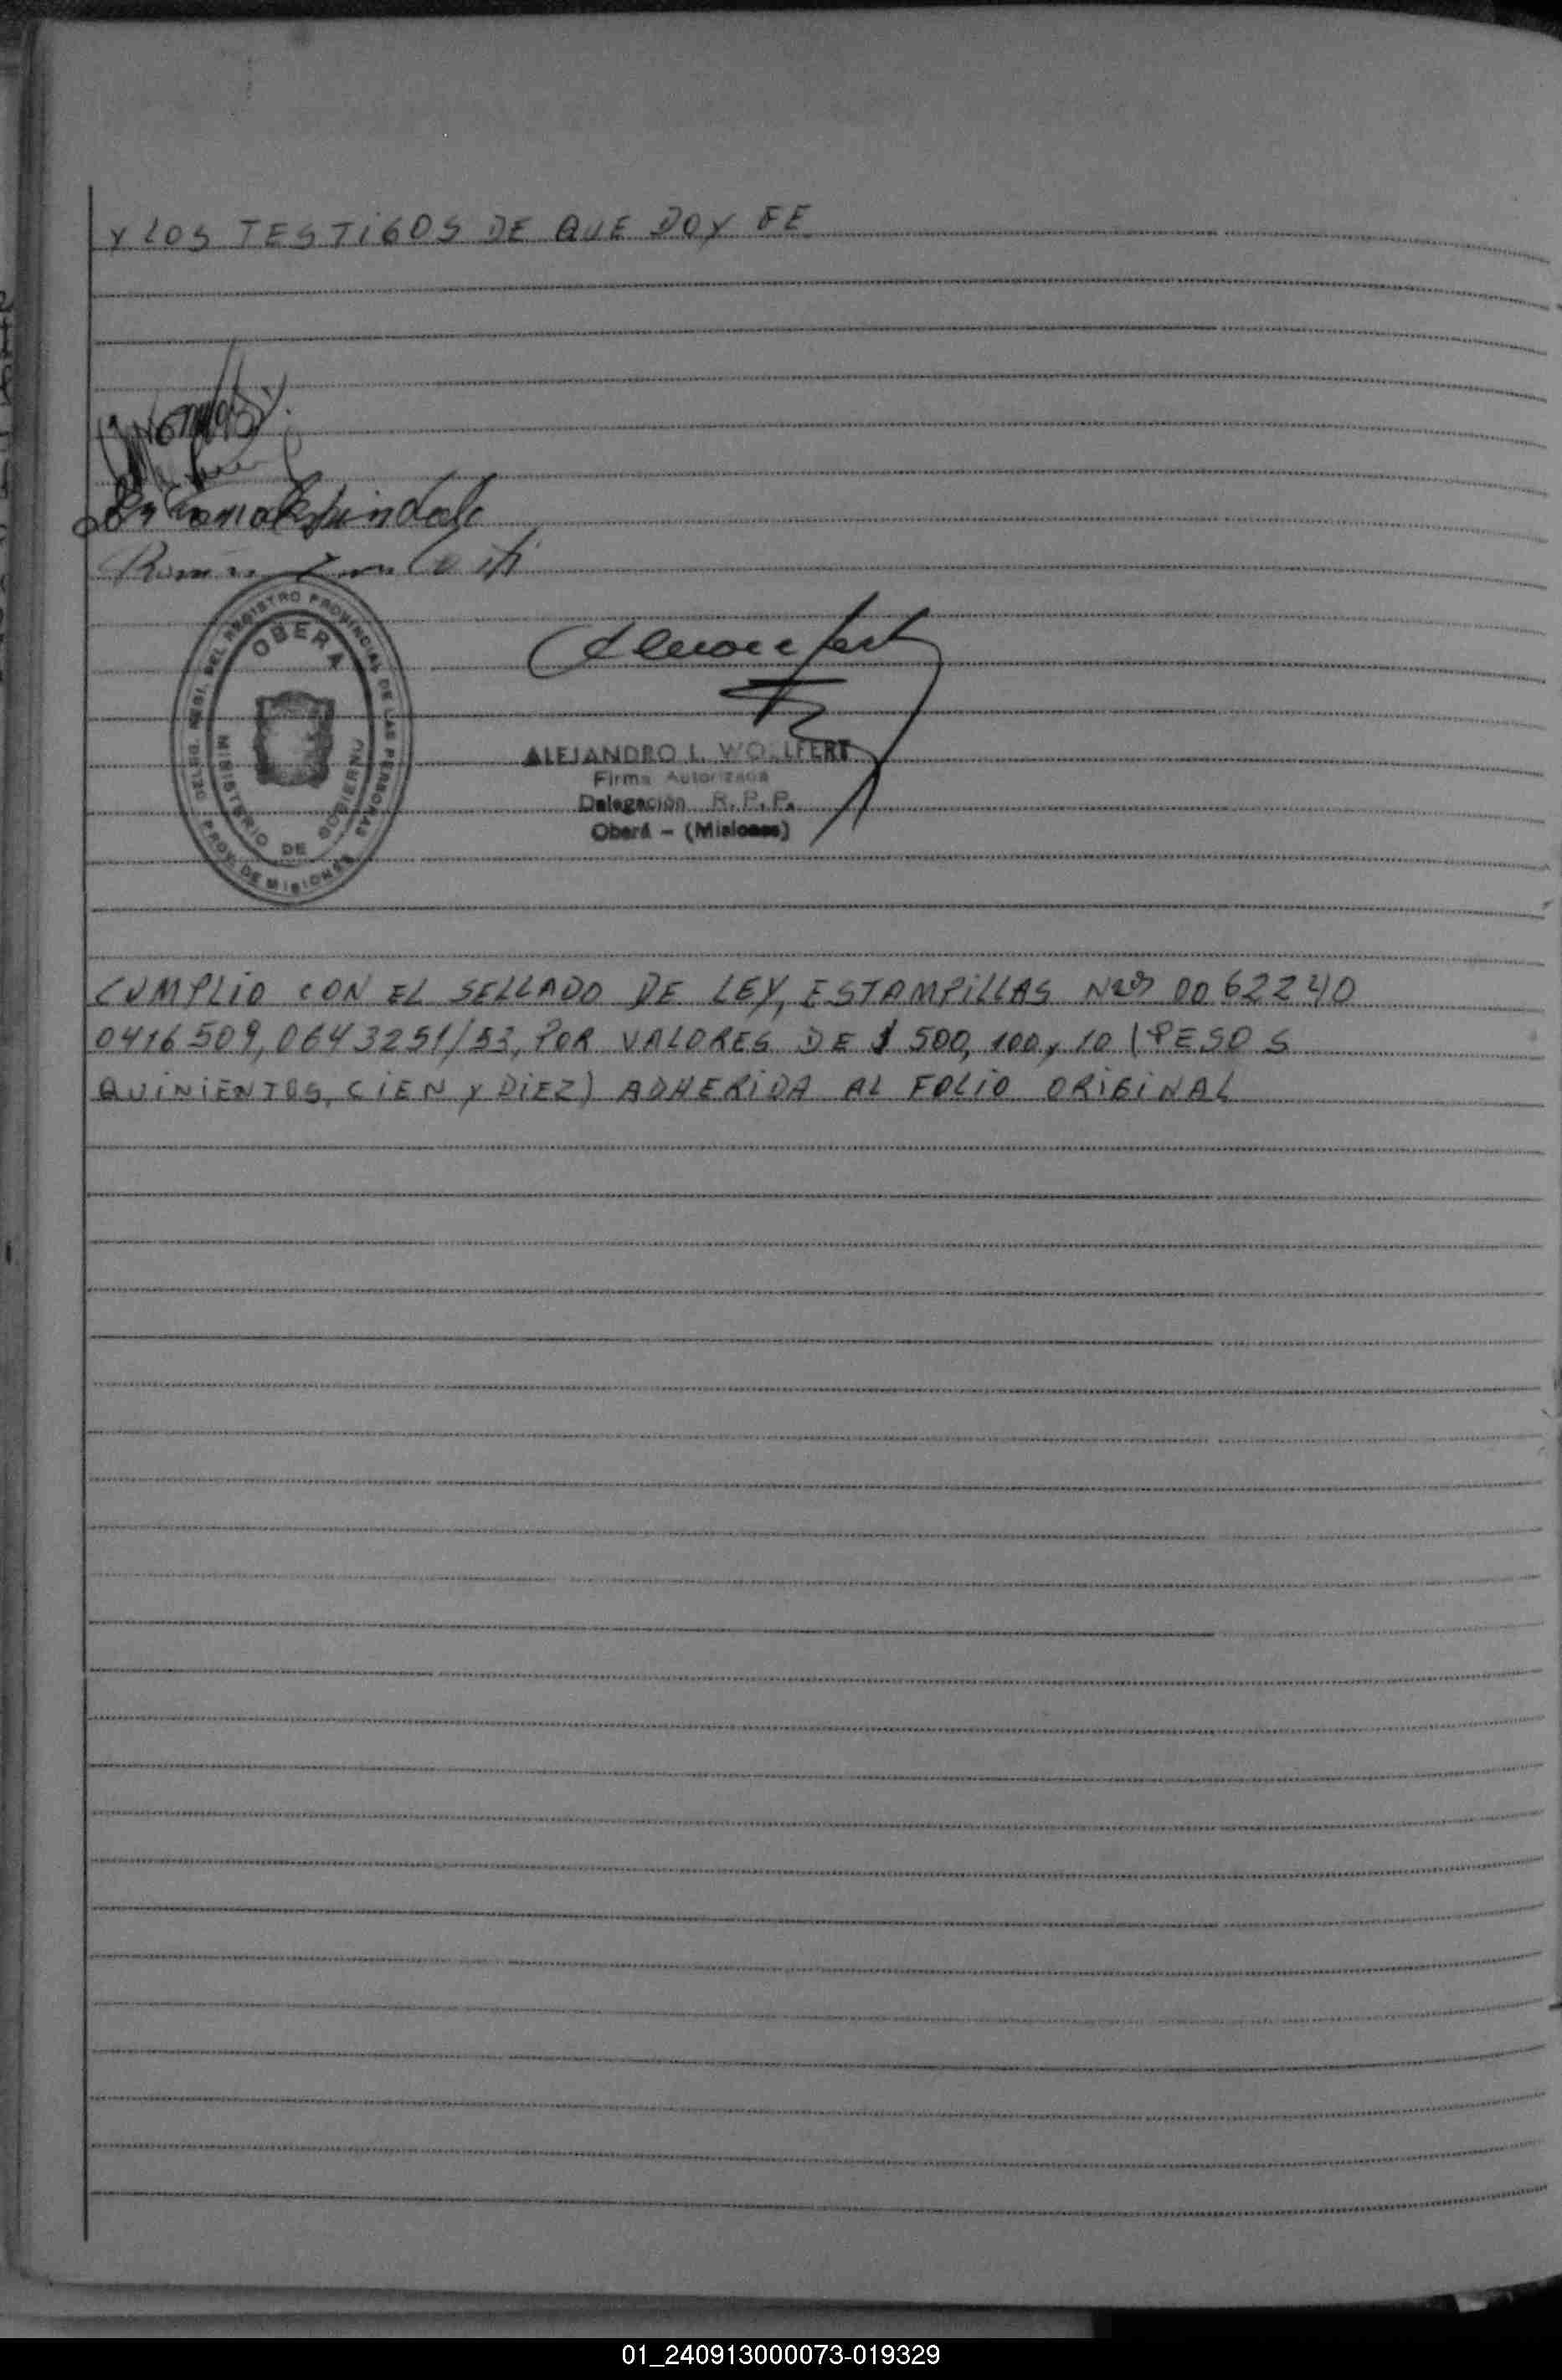 Y LOS TESTIGOS DE QUE DOY FE
OBERA
DELEG. REGI. DEL REGISTRO PROVINCIAL DE LAS PERSONAS
MINISTERIO DE GOBIERNO
PROV. DE MISIONES
ALEJANDRO L. WOLLFERT
Firma Autorizada
Delegación R. P. P.
Oberá - (Misiones)
CUMPLIO CON EL SELLADO DE LEY, ESTAMPILLAS Nros 0062240
0416509, 0643251/53, POR VALORES DE $ 500, 100, 10 (PESOS
QUINIENTOS, CIEN Y DIEZ) ADHERIDA AL FOLIO ORIGINAL
01_240913000073-019329